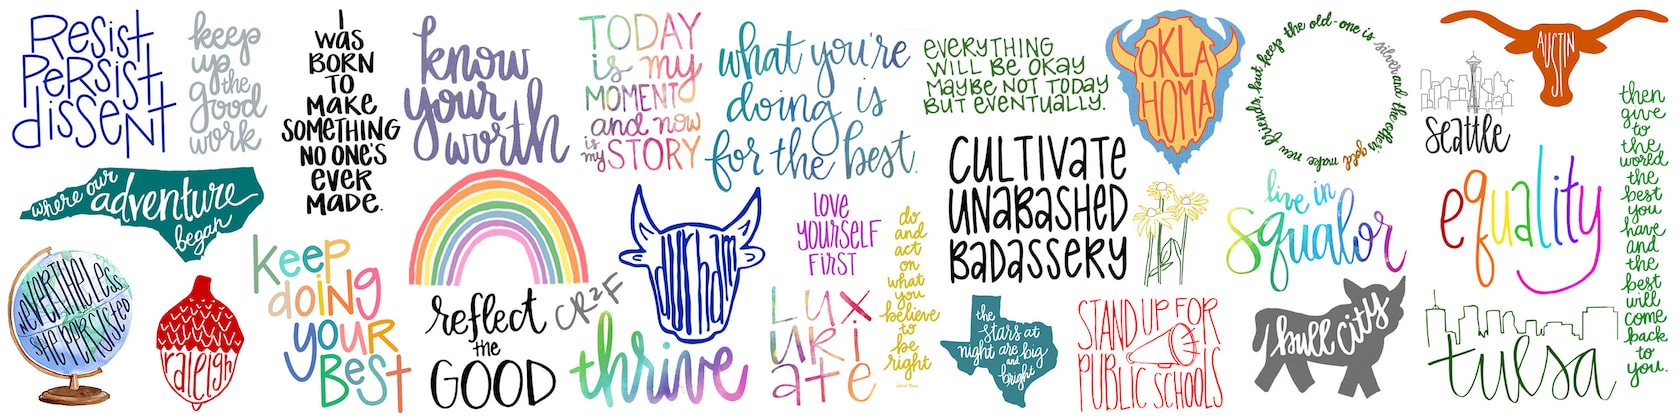 Resist
Persist
dissent
keep
up the
good
work
I
WAS
BORN
TO
MAKE
SOMETHING
NO ONE'S
EVER
MADE.
know
your
worth
TODAY
is my
MOMENT
and now
is my STORY
what you're
doing is
for the best.
EVERYTHING
WILL BE OKAY
MAYBE NOT TODAY
BUT EVENTUALLY.
OKLA
HOMA
make new friends, but keep the old-one is silver and the other's gold
AUSTIN
seattle
then
give
to
the
world
the
best
you
have
and
the
best
will
come
back
to
you.
where our
adventure
began
nevertheless
she persisted
raleigh
keep
doing
your
Best
reflect
the
GOOD
CR2F
durham
thrive
LOVE
YOURSELF
FIRST
LUX
URI
ATE
do
and
act
on
what
you
believe
to
be
right
CULTIVATE
UNABASHED
BADASSERY
the
stars at
night are big
and
bright
live in
squalor
STAND UP FOR
PUBLIC SCHOOLS
bull city
equality
tulsa